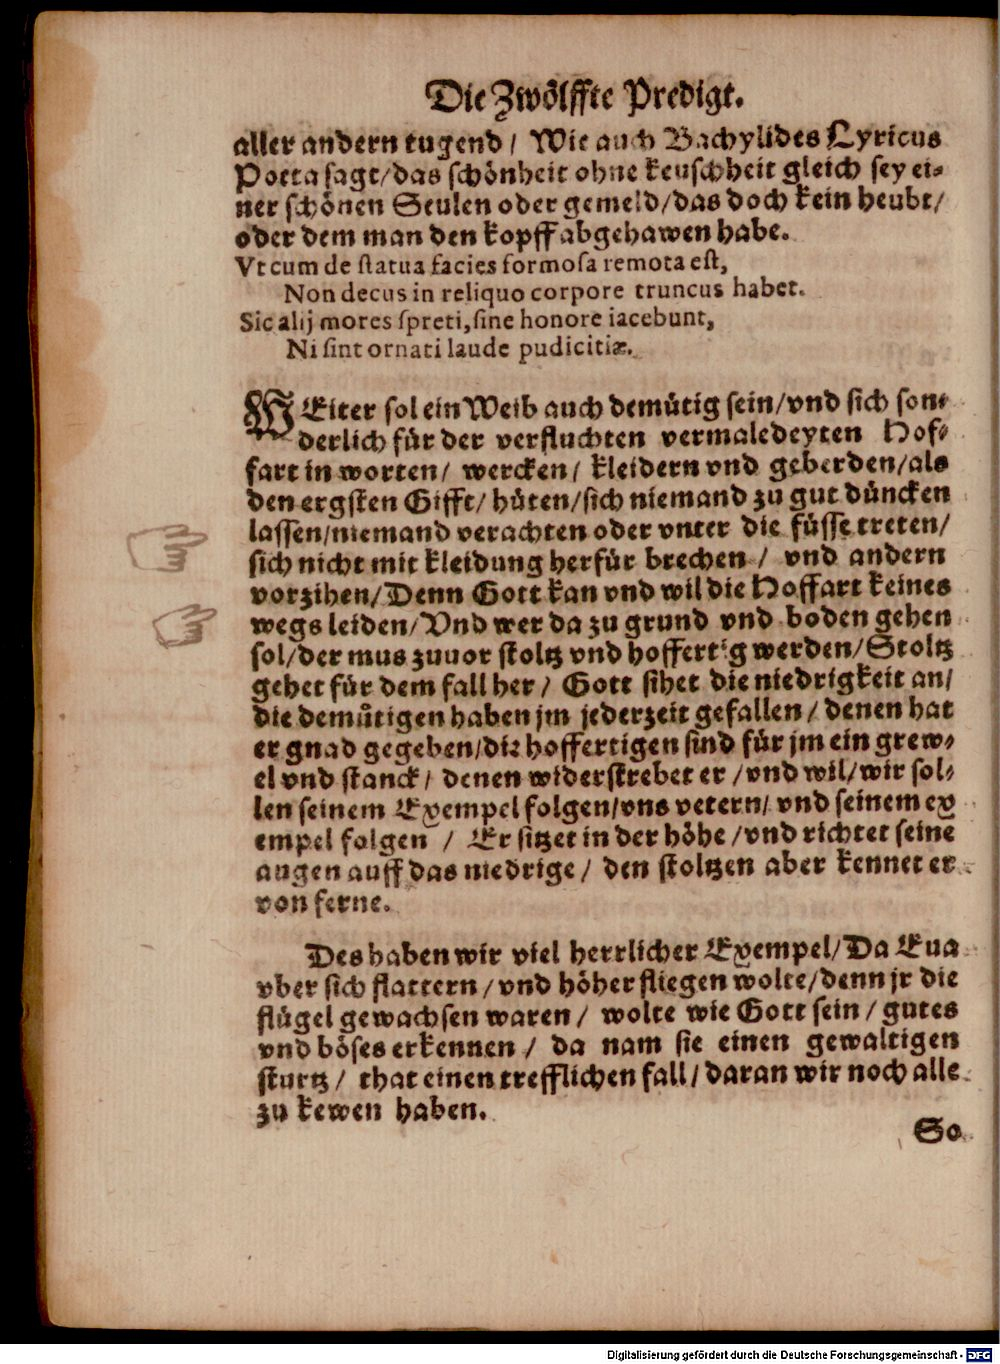 Die Zwölffte Predigt.
aller andern tugend / Wie auch Bachylides Lyricus
Poeta sagt/das schönheit ohne keuschheit gleich sey ei-
ner schönen Seulen oder gemeld/das doch kein heubt/
oder dem man den kopff abgehawen habe.
Vt cum de statua facies formosa remota est,
Non decus in reliquo corpore truncus habet.
Sic alij mores spreti, sine honore iacebunt,
Ni sint ornati laude pudicitiæ.
WEiter sol ein Weib auch demütig sein/vnd sich son-
derlich für der verfluchten vermaledeyten Hof-
fart in worten/ wercken/ kleidern vnd geberden/als
den ergsten Gifft/ hüten/sich niemand zu gut düncken
lassen/niemand verachten oder vnter die füsse treten/
sich nicht mit kleidung herfür brechen / vnd andern
vorzihen/Denn Gott kan vnd wil die Hoffart keines
wegs leiden/Vnd wer da zu grund vnd boden gehen
sol/der mus zuuor stoltz vnd hoffertig werden/Stoltz
gehet für dem fall her / Gott sihet die niedrigkeit an/
die demütigen haben jm jederzeit gefallen / denen hat
er gnad gegeben/die hoffertigen sind für jm ein grew-
el vnd stanck/ denen widerstrebet er /vnd wil/wir sol-
len seinem Exempel folgen/vns vetern/ vnd seinem ex
empel folgen / Er sitzet in der höhe /vnd richtet seine
augen auff das niedrige / den stoltzen aber kennet er
von ferne.
Des haben wir viel herrlicher Exempel/Da Eua
vber sich flattern /vnd höher fliegen wolte/denn jr die
flügel gewachsen waren / wolte wie Gott sein / gutes
vnd böses erkennen / da nam sie einen gewaltigen
sturtz / that einen trefflichen fall/daran wir noch alle
zu kewen haben.
So
Digitalisierung gefördert durch die Deutsche Forschungsgemeinschaft - DFG